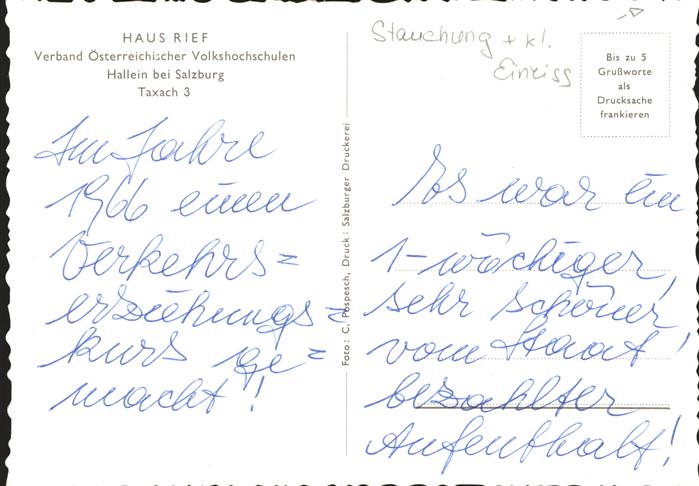 HAUS RIEF
Verband Österreichischer Volkshochschulen
Hallein bei Salzburg
Taxach 3
Im Jahre
1966 einen
Verkehrs=
erziehungs=
kurs ge=
macht!
Foto: C. Pospesch, Druck: Salzburger Druckerei
Stauchung + kl.
Einriss
Bis zu 5
Grußworte
als
Drucksache
frankieren
Es war ein
1-wöchiger,
sehr schöner,
vom Staat!
bezahlter
Aufenthalt!